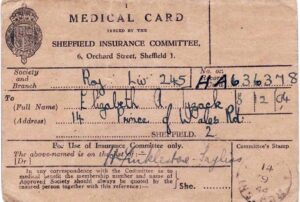 MEDICAL CARD
ISSUED BY THE
SHEFFIELD INSURANCE COMMITTEE,
6, Orchard Street, Sheffield 1.
Society and Branch Roy Lw 245 No. on AA636378
To (Full Name) Elizabeth A. Tyzack 8 12 04
(Address) 14 Prince of Wales Rd.
SHEFFIELD. 2
For Use of Insurance Committee only.
Committee's Stamp
The above-named is on
Dr.
In any correspondence with the Committee as to
medical benefit the membership number and name of
Approved Society should always be quoted by the
insured person together with this reference:—
She.
14
9